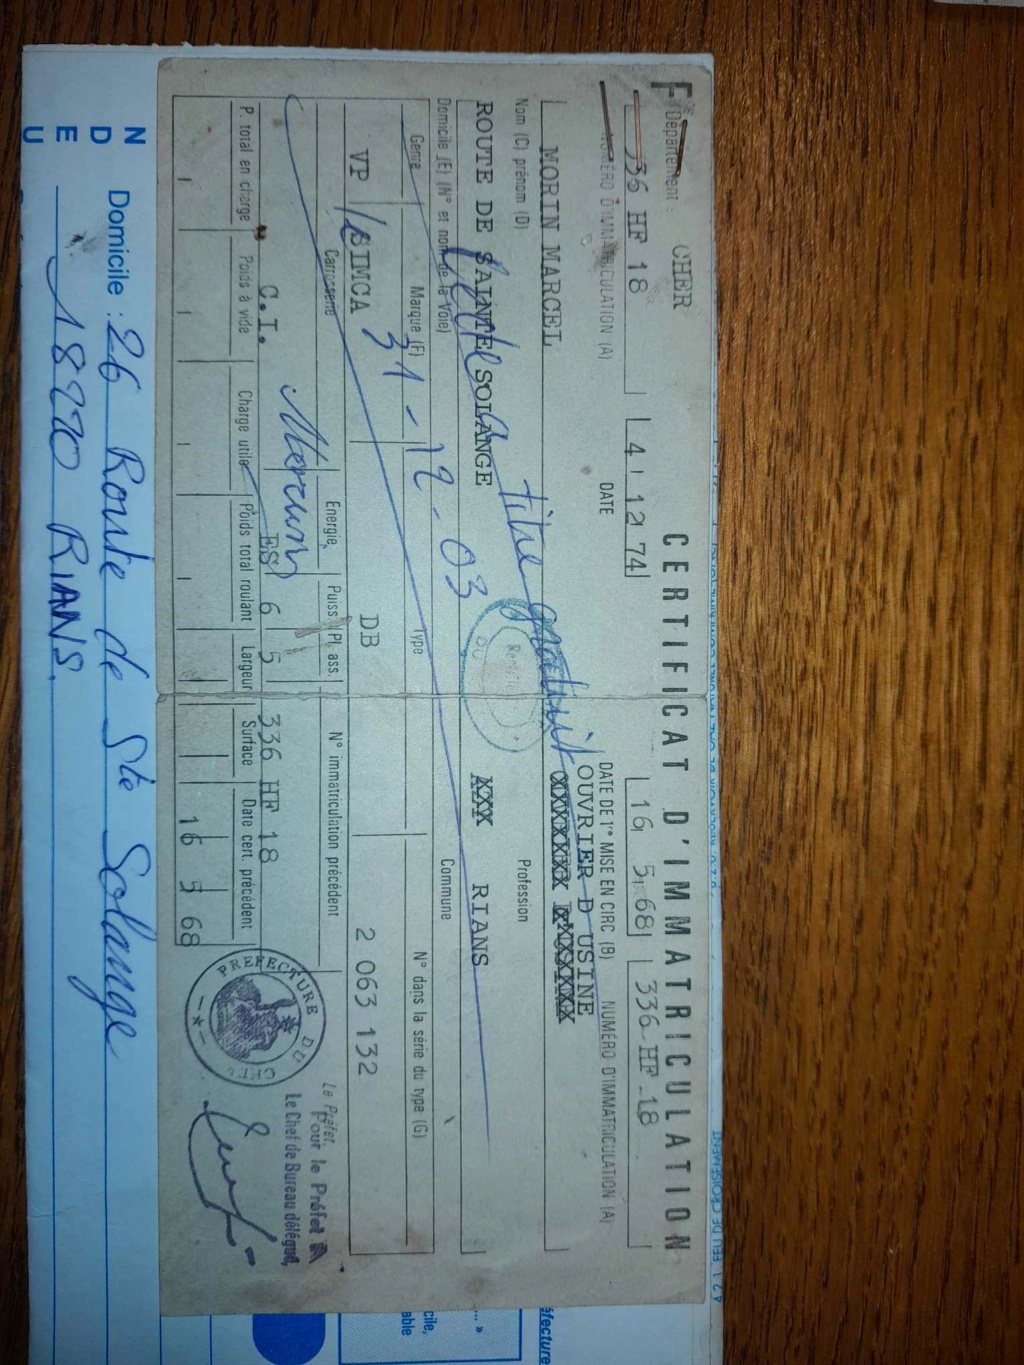 CERTIFICAT D'IMMATRICULATION
Département : CHER
NUMÉRO D'IMMATRICULATION (A) DATE DATE DE 1re MISE EN CIRC (B) NUMÉRO D'IMMATRICULATION (A)
336 HF 18 4 12 74 16 5 68 336 HF 18
OUVRIER D USINE
MORIN MARCEL XXXXXXX XXXXXXX
Nom (C) prénom (D) Profession
ROUTE DE SAINTE SOLANGE XXX RIANS
Domicile (E) (N° et nom de la Voie) Commune
Cédée à titre gratuit
31-12-03
Morin
Genre Marque (F) Type N° dans la série du type (G)
VP SIMCA DB 2 063 132
Carrosserie Energie Puiss. Pl. ass. N° immatriculation précédent
C.I. ES 6 5 336 HF 18
P. total en charge Poids à vide Charge utile Poids total roulant Largeur Surface Date cert. précédent
16 5 68
PREFECTURE DU CHER
Le Préfet,
Pour le Préfet
Le Chef de Bureau délégué,
Domicile : 26 Route de Ste Solange
18220 RIANS.
N
D
E
U